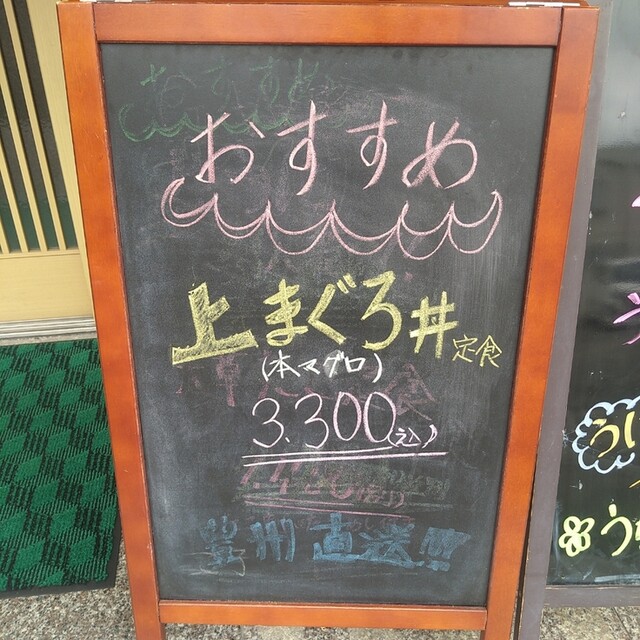 おすすめ
おすすめ
上まぐろ丼定食
(本マグロ)
3.300(込)
直送!!
う